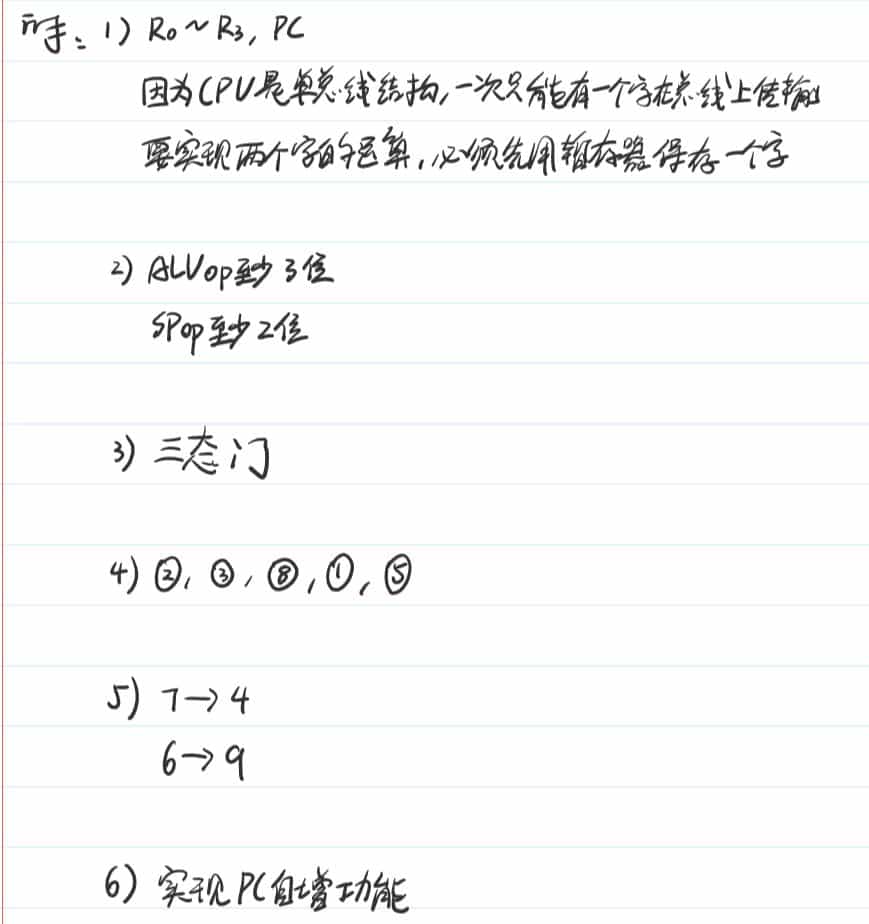 解: 1) R0~R3, PC
因为CPU是单总线结构,一次只能有一个字在总线上传输
要实现两个字的运算,必须先用暂存器保存一个字
2) ALUop至少3位
SPop至少2位
3) 三态门
4) ②, ③, ⑧, ①, ⑤
5) 7→4
6→9
6) 实现PC自增功能